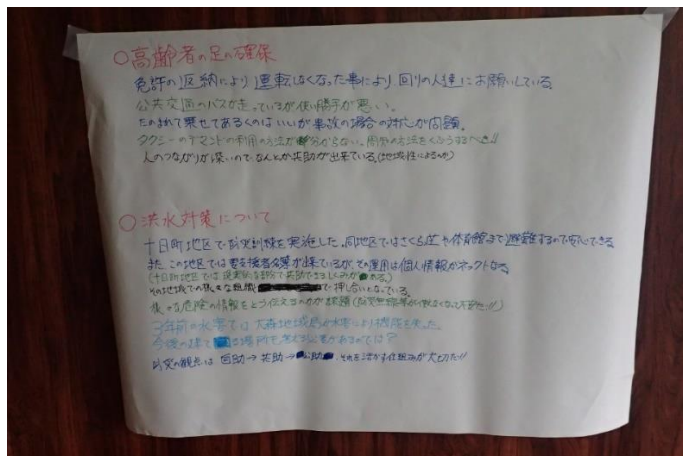 ○高齢者の足の確保
免許の返納により運転しなくなった事により回りの人達にお願いしている。
公共交通のバスが走っているが使い勝手が悪い。
たのまれて乗せてあるくのはいいが事故の場合の対応が問題。
タクシーのデマンドの利用の方法が分からない。周知の方法をくふうするべき!!
人のつながりが深いので、なんとか共助が出来ている。(地域性によるのか)
○洪水対策について
十日町地区で防災訓練を実施した。同地区ではさくら荘や体育館まで避難するので安心できる
また、この地区では要支援者名簿が出来ているが、その運用は個人情報がネックとなる。
(十日町地区では現実的な部分で共助できるしくみがある。)
その地域での様々な組織で押し合いとなっている。
様々な危険の情報をどう伝えるのかが課題(防災無線等が
3年前の水害では大森地域局が水害により機能を失った。
今後の課で場所を考える必要があるのでは?
防災の観点は自助→共助→公助、それを活かす仕組みが大切だ!!